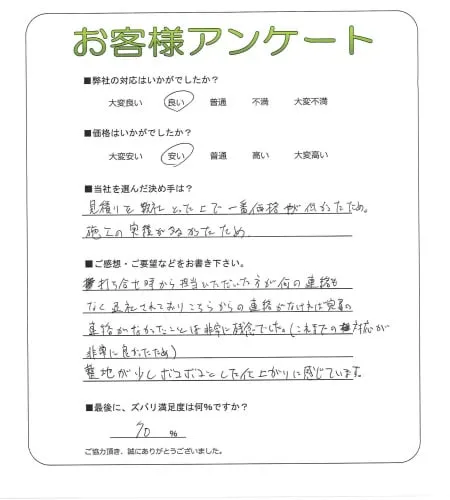 お客様アンケート
■弊社の対応はいかがでしたか?
大変良い 良い 普通 不満 大変不満
■価格はいかがでしたか?
大変安い 安い 普通 高い 大変高い
■当社を選んだ決め手は?
見積りを数社とった上で一番価格が低かったため。
施工の実績が多かったため
■ご感想・ご要望などをお書き下さい。
打ち合せ時から担当いただいた方が何の連絡も
なく退社されておりこちらからの連絡がなければ
連絡がなかったことは非常に残念でした。(これまでの対応が
非常に良かったため)
墓地が少しボコボコとした仕上がりに感じています。
■最後に、ズバリ満足度は何%ですか?
70 %
ご協力頂き、誠にありがとうございました。